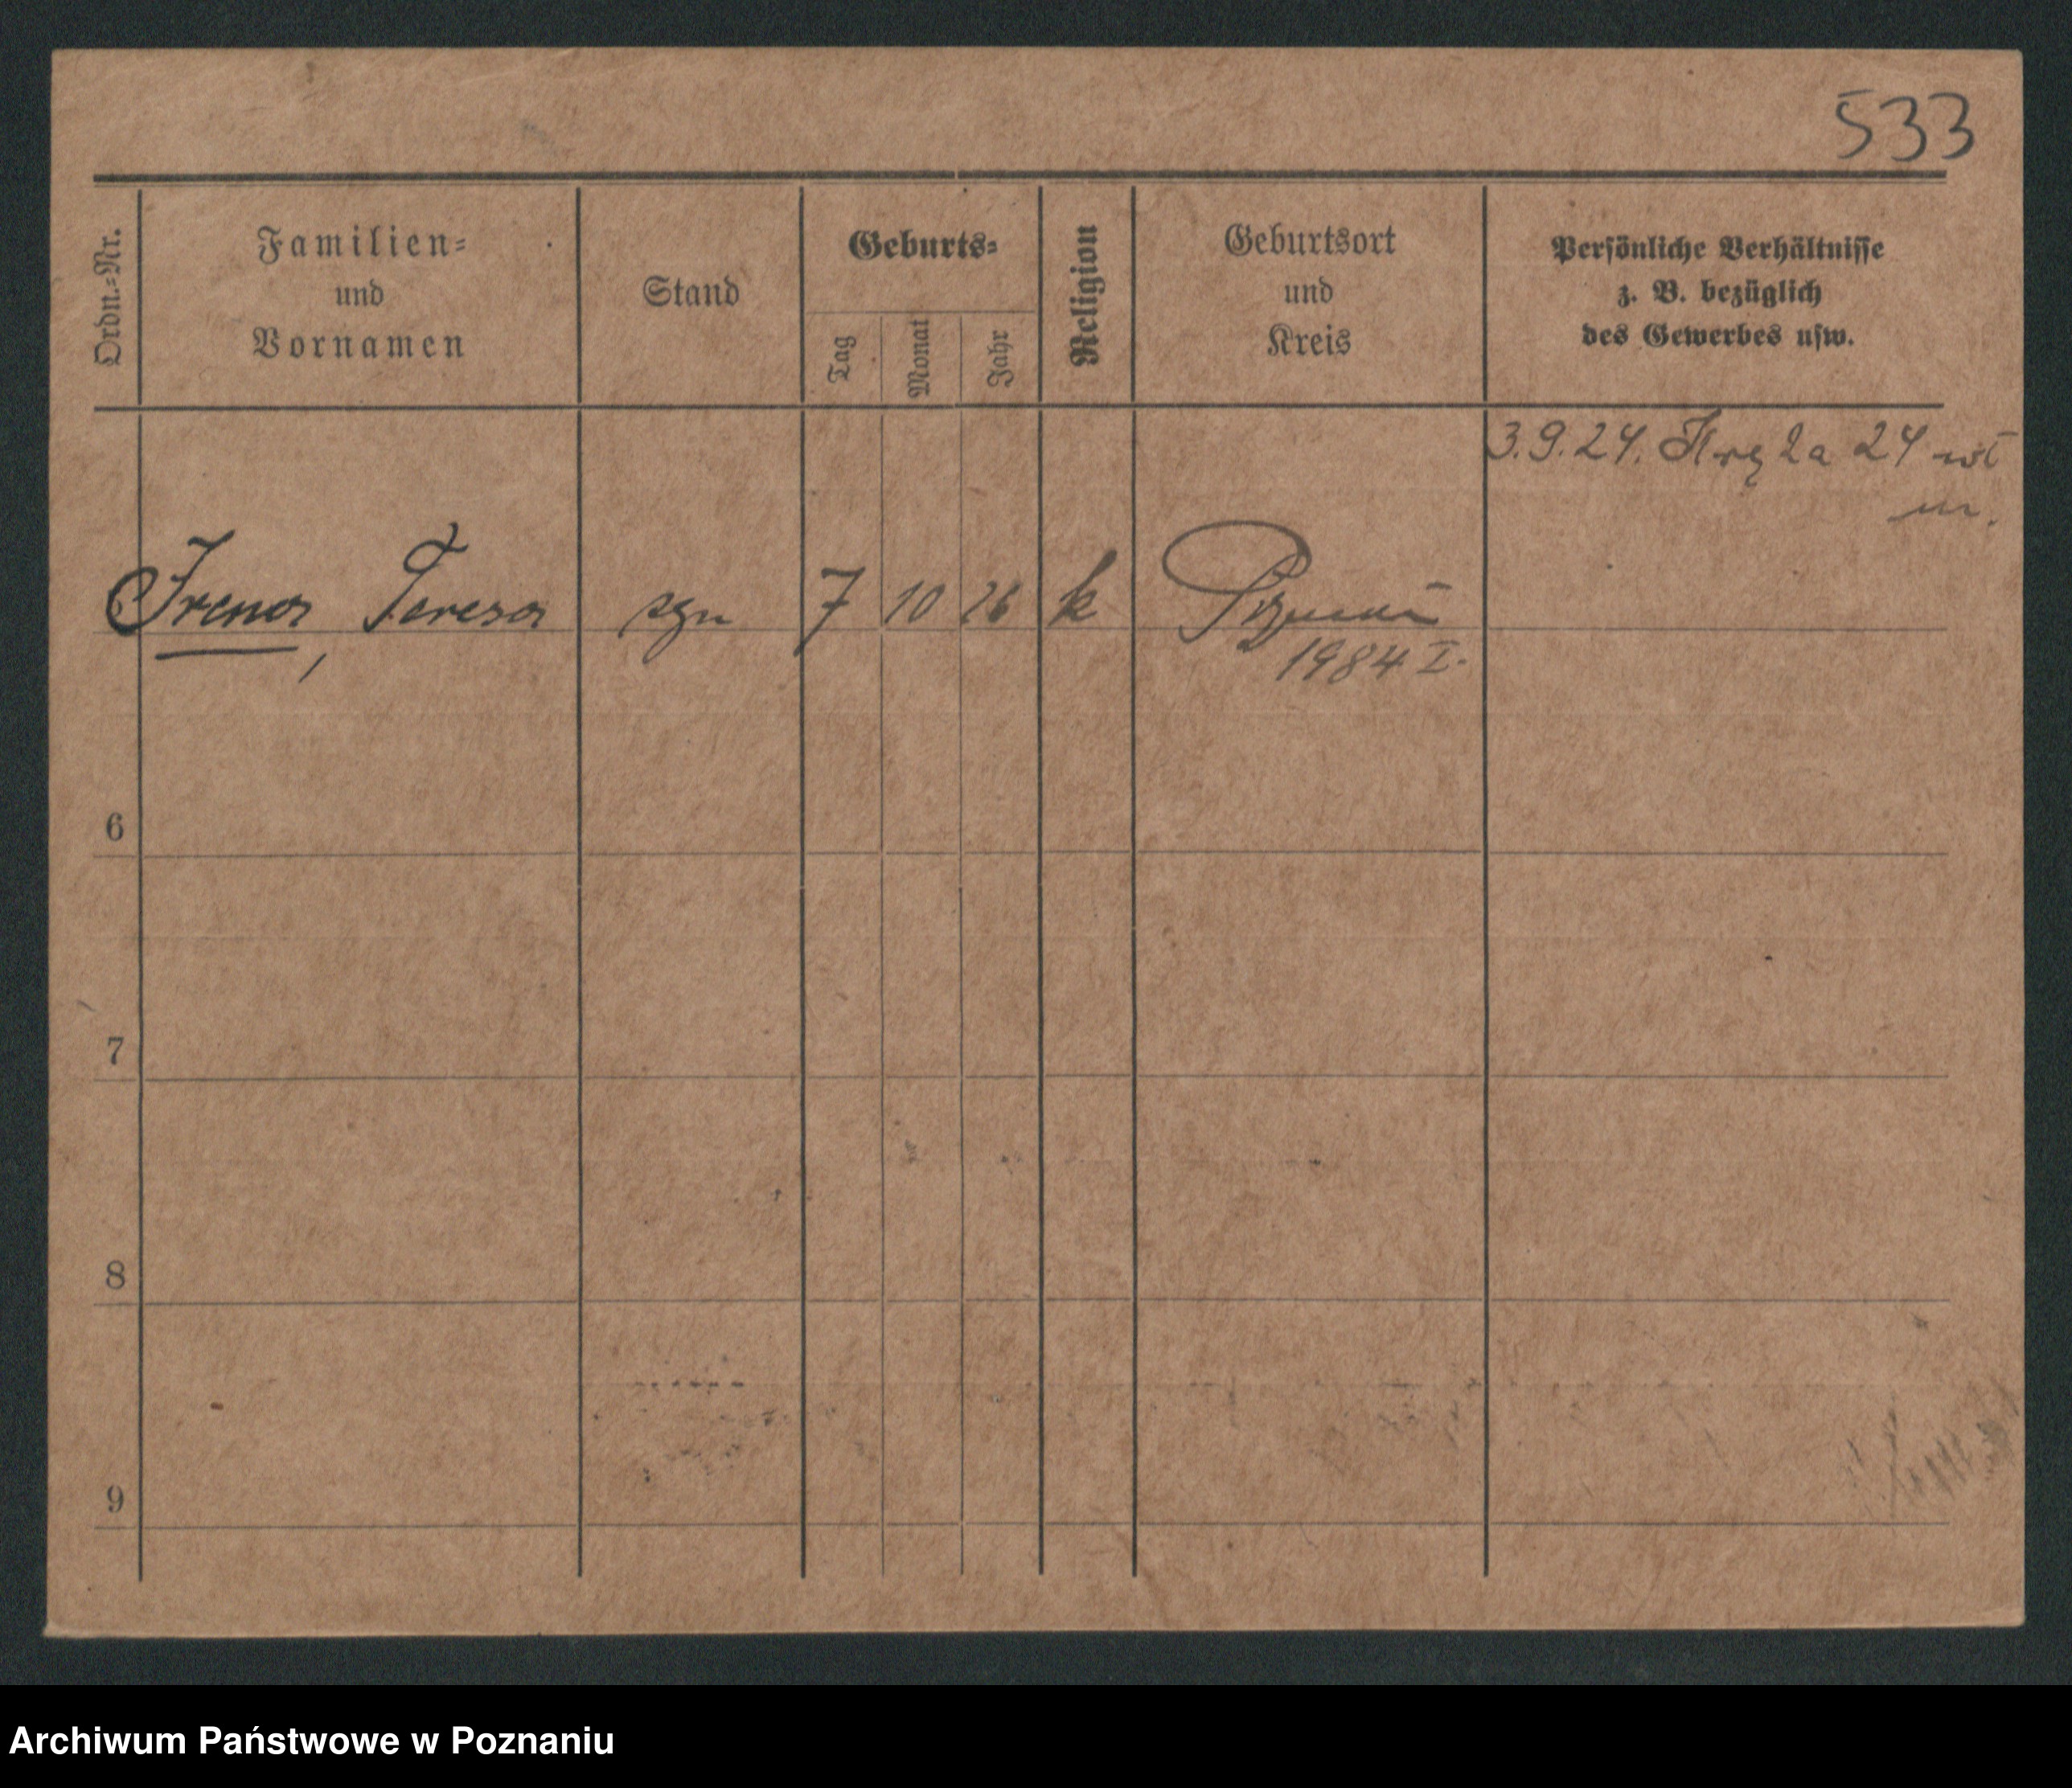 533
Ordn.-Nr.
Familien-
und
Vornamen
Stand
Geburts-
Tag
Monat
Jahr
Religion
Geburtsort
und
Kreis
Persönliche Verhältnisse
z. B. bezüglich
des Gewerbes usw.
3.9.24. Kręta 24 wł
m.
Irena Teresa 7 10 26 k Poznań
1984 I.
6
7
8
9
Archiwum Państwowe w Poznaniu